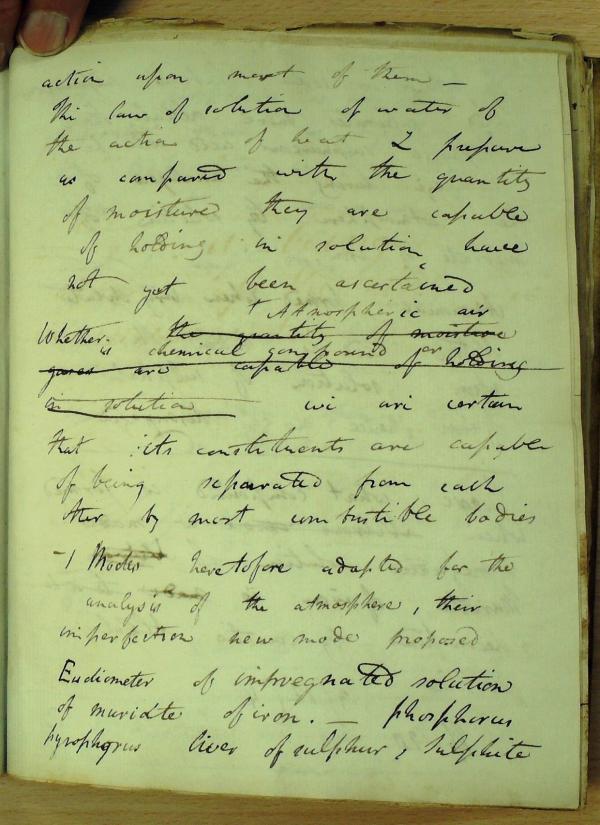 action upon most of them —
The law of solution of water of
the action of heat I prepare
as compared with the quantity
of moisture they are capable
of holding in solution have
not yet been ascertained
+ Atmospheric air
Whether the quantity of moisture
is chemical compound or
gases are capable of holding
in solution we are certain
that its constituents are capable
of being separated from each
other by most combustible bodies
— 1 Modes heretofore adopted for the
analysis of the atmosphere, their
imperfection new mode proposed
Eudiometer of impregnated solution
of muriate of iron. — phosphorus
pyrophorus liver of sulphur, sulphite